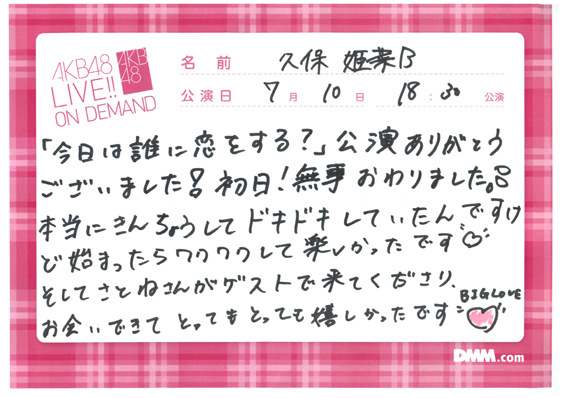 AKB48
LIVE!!
ON DEMAND
AKB
48
名前 久保 姫菜乃
公演日 7月 10日 18:30 公演
「今日は誰に恋をする?」公演ありがとう
ございました! 初日!無事おわりました。
本当にきんちょうしてドキドキしていたんですけ
ど始まったらワクワクして楽しかったです♡
そしてさとねさんがゲストで来てくださり、
お会いできてとってもとっても嬉しかったです
BIGLOVE
DMM.com